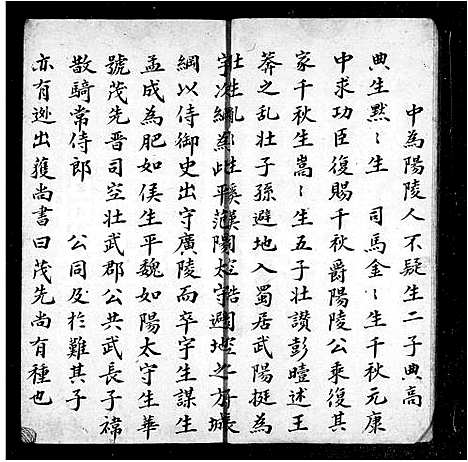 中為陽陵人不疑生二子典高
典生默〻生 司馬金〻生千秋元康
中求功臣復賜千秋爵陽陵公乘復其
家千秋生嵩〻生五子壯讃彭曀述王
莽之亂壯子孫避地入蜀居武陽挺為
壯生 漢司空皓 長
宇次綱為此平范陽太守避地之方城
綱以侍御史出守廣陵而卒宇生謀生
孟成為肥如侯生平魏如陽太守生華
號茂先晋司空壯武郡公共武長子禕
散騎常侍郎 公同及於難其子
亦有迯出獲尚書曰茂先尚有種也